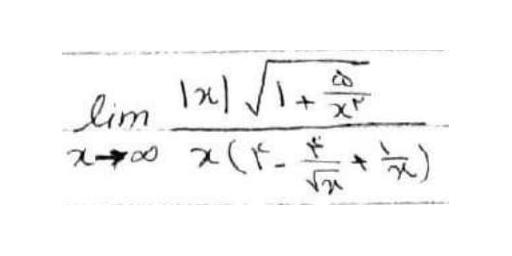 lim x→∞ |x| √(۱ + ۵/x^۲) / x(۲ - ۴/√x + ۱/x)